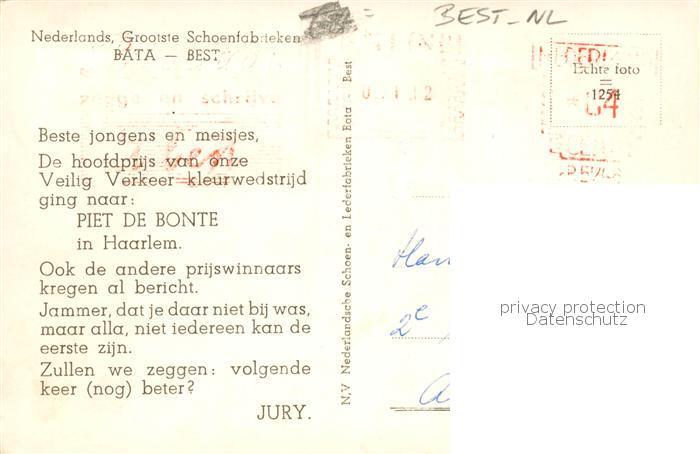 BEST-NL
Nederlands, Grootste Schoenfabrieken
BATA — BEST
Echte foto
1254
04
zegge en schrijve
Beste jongens en meisjes,
De hoofdprijs van onze
Veilig Verkeer kleurwedstrijd
ging naar:
PIET DE BONTE
in Haarlem.
Ook de andere prijswinnaars
kregen al bericht.
Jammer, dat je daar niet bij was,
maar alla, niet iedereen kan de
eerste zijn.
Zullen we zeggen: volgende
keer (nog) beter?
JURY.
N.V Nederlandsche Schoen- en Lederfabrieken Bata - Best
2e
privacy protection
Datenschutz